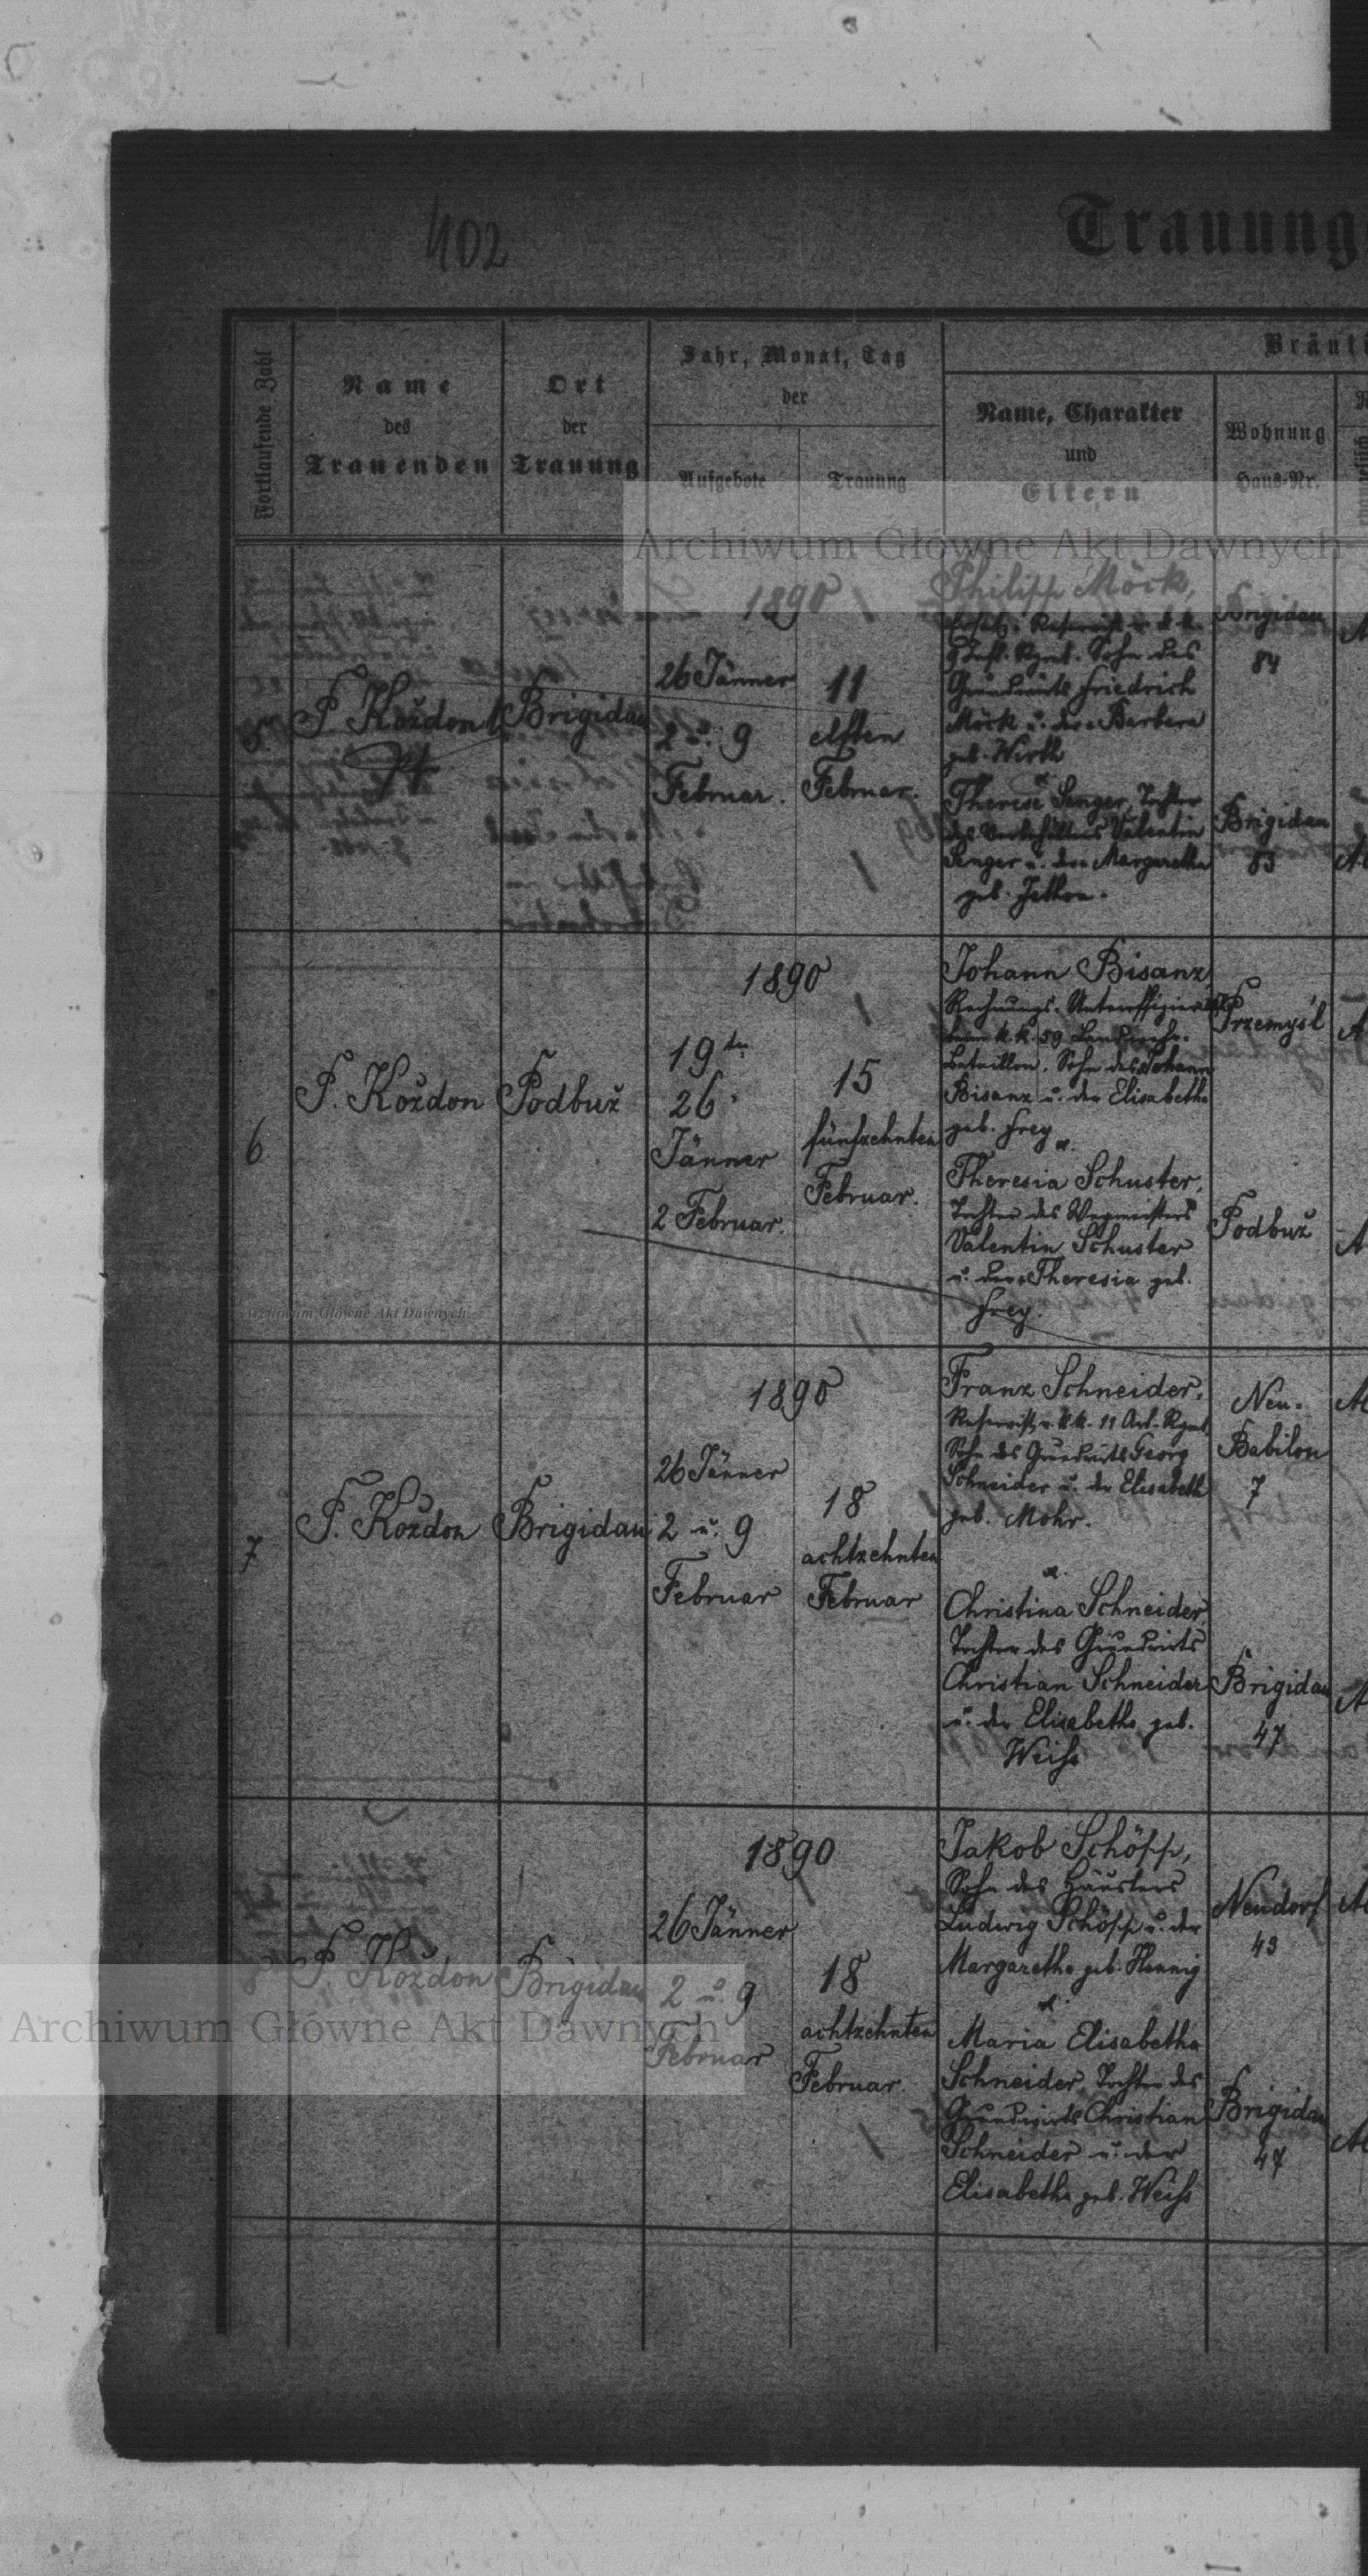 402
Trauung
Fortlaufende Zahl
Name
des
Trauenden
Ort
der
Trauung
Jahr, Monat, Tag
der
Aufgebote
Trauung
Bräuti
Name, Charakter
und
Eltern
Wohnung
Haus-Nr.
Archiwum Główne Akt Dawnych
5
P Koždon
Brigidau
1890
26 Jänner
2 u. 9
Februar.
11
elften
Februar.
Philipp Möck,
Reservist k. k.
9 Inft. Rgmt. Sohn des
Grundwirts Friedrich
Möck u. der Barbara
geb. Wirth
et
Therese Senger, Tochter
des Valentin
Senger u. der Margaretha
geb.
Brigidau
84
Brigidau
83
6
P. Koždon
Podbuž
1890
19ten
26
Jänner
2 Februar.
15
fünfzehnten
Februar.
Johann Bisanz,
Rechnungs-Unteroffizier
beim k. k. 59 Landwehr-
Bataillon, Sohn des Johann
Bisanz u. der Elisabetha
geb. Frey
et.
Theresia Schuster,
Tochter des Wegmeisters
Valentin Schuster
u. der Theresia geb.
Frey.
Przemyśl
Podbuž
Archiwum Główne Akt Dawnych
7
P. Koždon
Brigidau
1890
26 Jänner
2 u. 9
Februar
18
achtzehnten
Februar
Franz Schneider,
Reservist v. k. k. 11 Art. Rgmt,
Sohn des Grundwirts Georg
Schneider u. der Elisabeth
geb. Mohr.
et.
Christina Schneider,
Tochter des Grundwirts
Christian Schneider
u. der Elisabetha geb.
Weiss
Neu-
Babilon
7
Brigidau
47
8
P. Koždon
Brigidau
1890
26 Jänner
2 u. 9
Februar
18
achtzehnten
Februar.
Jakob Schöpp,
Sohn des Häuslers
Ludwig Schöpp u. der
Margaretha geb. Hennig
et.
Maria Elisabetha
Schneider, Tochter des
Grundwirts Christian
Schneider u. der
Elisabetha geb. Weiss
Neudorf
43
Brigidau
47
Archiwum Główne Akt Dawnych